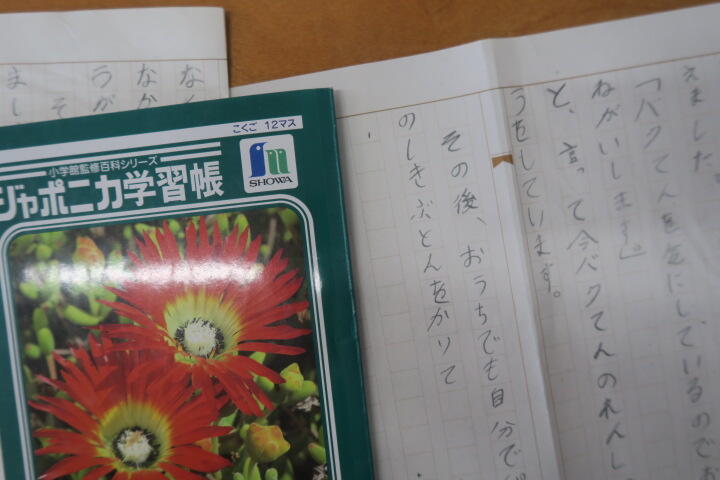 えました。
「バクてんを気にしているのでお
ねがいします。」
と、言って今バクてんのれんし
うをしています。
その後、おうちでも自分で
のしきぶとんをかりて
なか
うが
そ
まし
こくご 12マス
小学館監修百科シリーズ
ジャポニカ学習帳
SHOWA